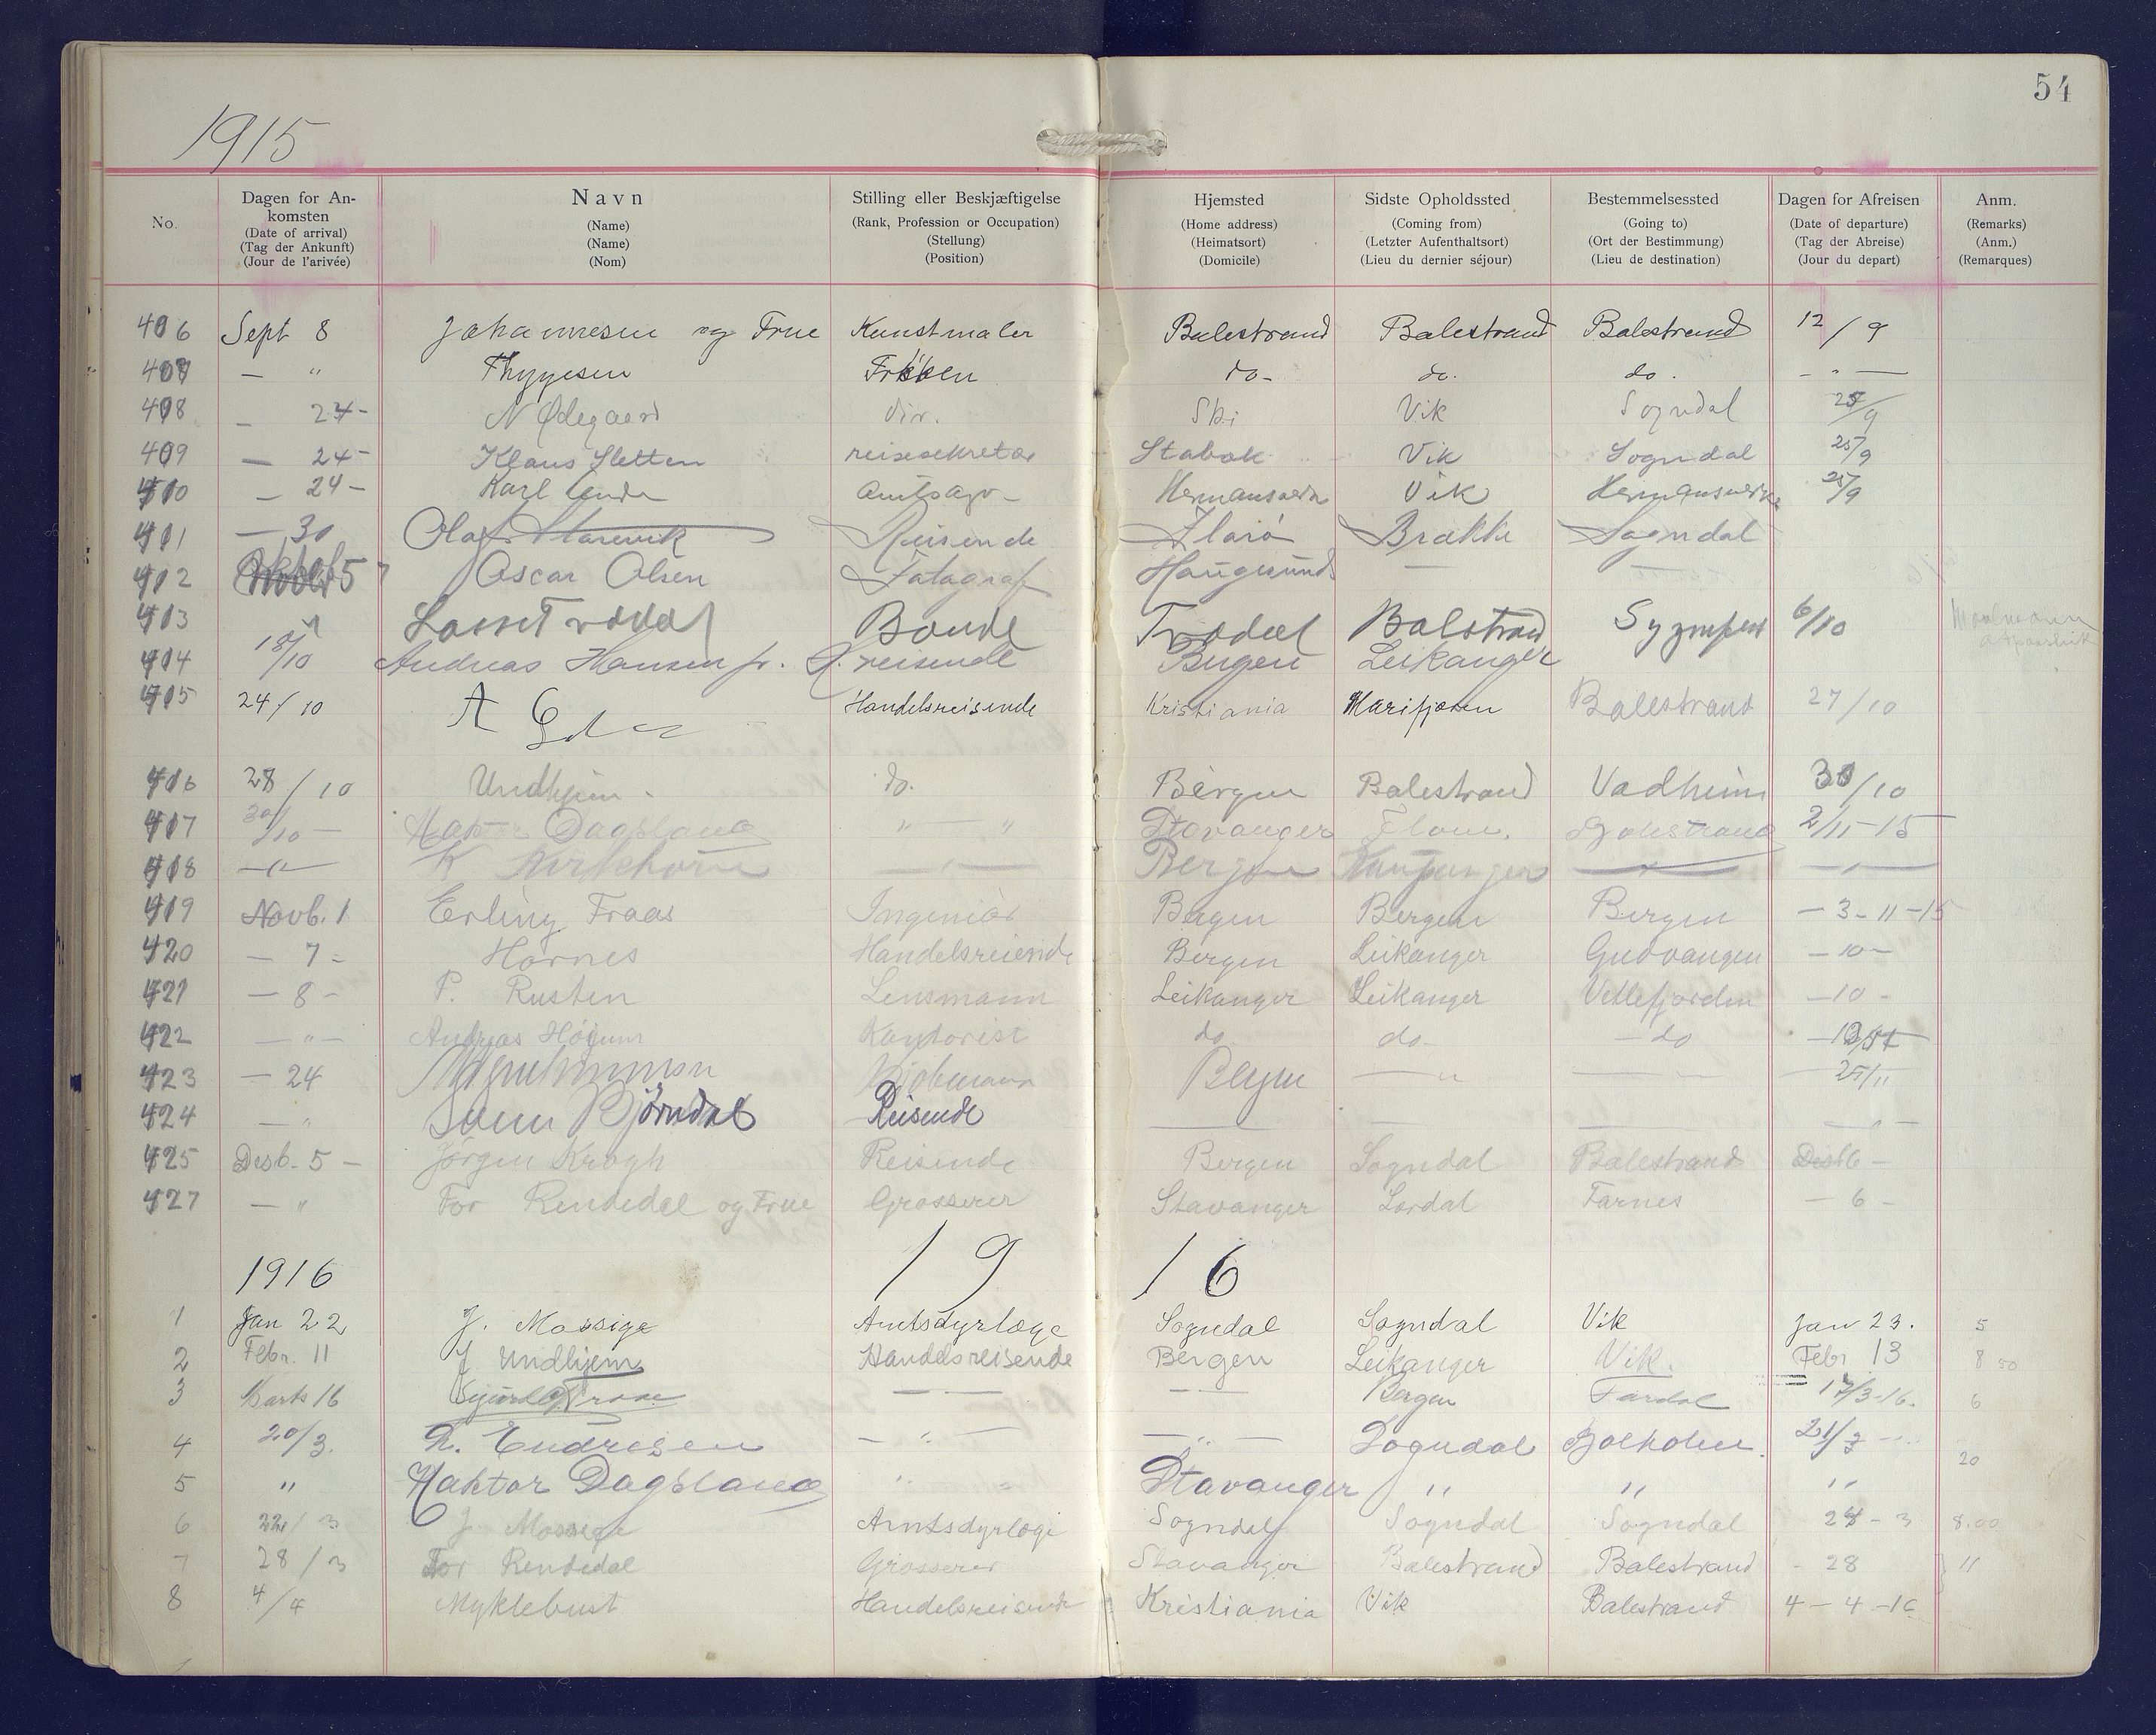 54
1915
No.
Dagen for An-
komsten
(Date of arrival)
(Tag der Ankunft)
(Jour de l'arivée)
Navn
(Name)
(Name)
(Nom)
Stilling eller Beskjæftigelse
(Rank, Profession or Occupation)
(Stellung)
(Position)
Hjemsted
(Home address)
(Heimatsort)
(Domicile)
Sidste Opholdssted
(Coming from)
(Letzter Aufenthaltsort)
(Lieu du dernier séjour)
Bestemmelsessted
(Going to)
(Ort der Bestimmung)
(Lieu de destination)
Dagen for Afreisen
(Date of departure)
(Tag der Abreise)
(Jour du depart)
Anm.
(Remarks)
(Anm.)
(Remarques)
406 Sept 8 Johannesen og Frue Kunstmaler Balestrand Balestrand Balestrand 12/9
407 — " Thygesen Frøken do- do. do. — " —
408 — 24- N Ødegaard dir. Ski Vik Sogndal 25/9
409 — 24- Klaus Sletten reisesekretær Stabæk Vik Sogndal 25/9
410 — 24- Karl Amts Vik 25/9
411 — 30 Olaf Reisende Florø Brække Sogndal
412 5 Oscar Olsen Fatagraf Haugesund —
413 Lasse Bonde Balstrand 6/10
414 18/10 Andreas Hansen jr. H. reisende Bergen Leikanger
415 24/10 A Handelsreisende Kristiania Marifjøren Balestrand 27/10
416 28/10 Undhjem do. Bergen Balestrand Vadheim 30/10
417 30/10 — Haktor Dagsland " — " Stavanger Flom. Balestrand 2/11-15
418 — " — K — " — Bergen Kaupanger — " — — " —
419 Novb. 1 Erling Fraas Ingeniør Bergen Bergen Bergen — 3-11-15
420 — 7 - Hornes Handelsreisende Bergen Leikanger Gudvangen — 10 —
421 — 8 - P. Rusten Lensmann Leikanger Leikanger Vetlefjorden — 10 -
422 — " — Andreas Kontorist do do - do
423 — 24 Bergen — " — 25/11
424 — " Bjørndal Reisende — — — — " —
425 Desb. 5 — Jørgen Krogh Reisende Bergen Sogndal Balestrand Desb 6 —
427 — " Tor Rendedal og Frue Grosserer Stavanger Lærdal Farnes — 6 —
1916 1916
1 Jan 22 J. Mossige Amtsdyrlæge Sogndal Sogndal Vik Jan 23. 5
2 Febr. 11 J. Undhjem Handelsreisende Bergen Leikanger Vik. Febr 13 8 50
3 Marts 16 — " — — " — Bergen Fardal 17/3-16. 6
4 20/3. R. Endresen — " — — " — Sogndal Balholm. 21/3
5 " Haktor Dagsland " Stavanger " " " 20
6 22/3 J Mossige Amtsdyrlæge Sogndal Sogndal Sogndal 24 - 3 8.00
7 28/3 Tor Rendedal Grosserer Stavanger Balestrand Balestrand - 28 11
8 4/4 Myklebust Handelsreisende Kristiania Vik Balestrand 4 - 4 - 16